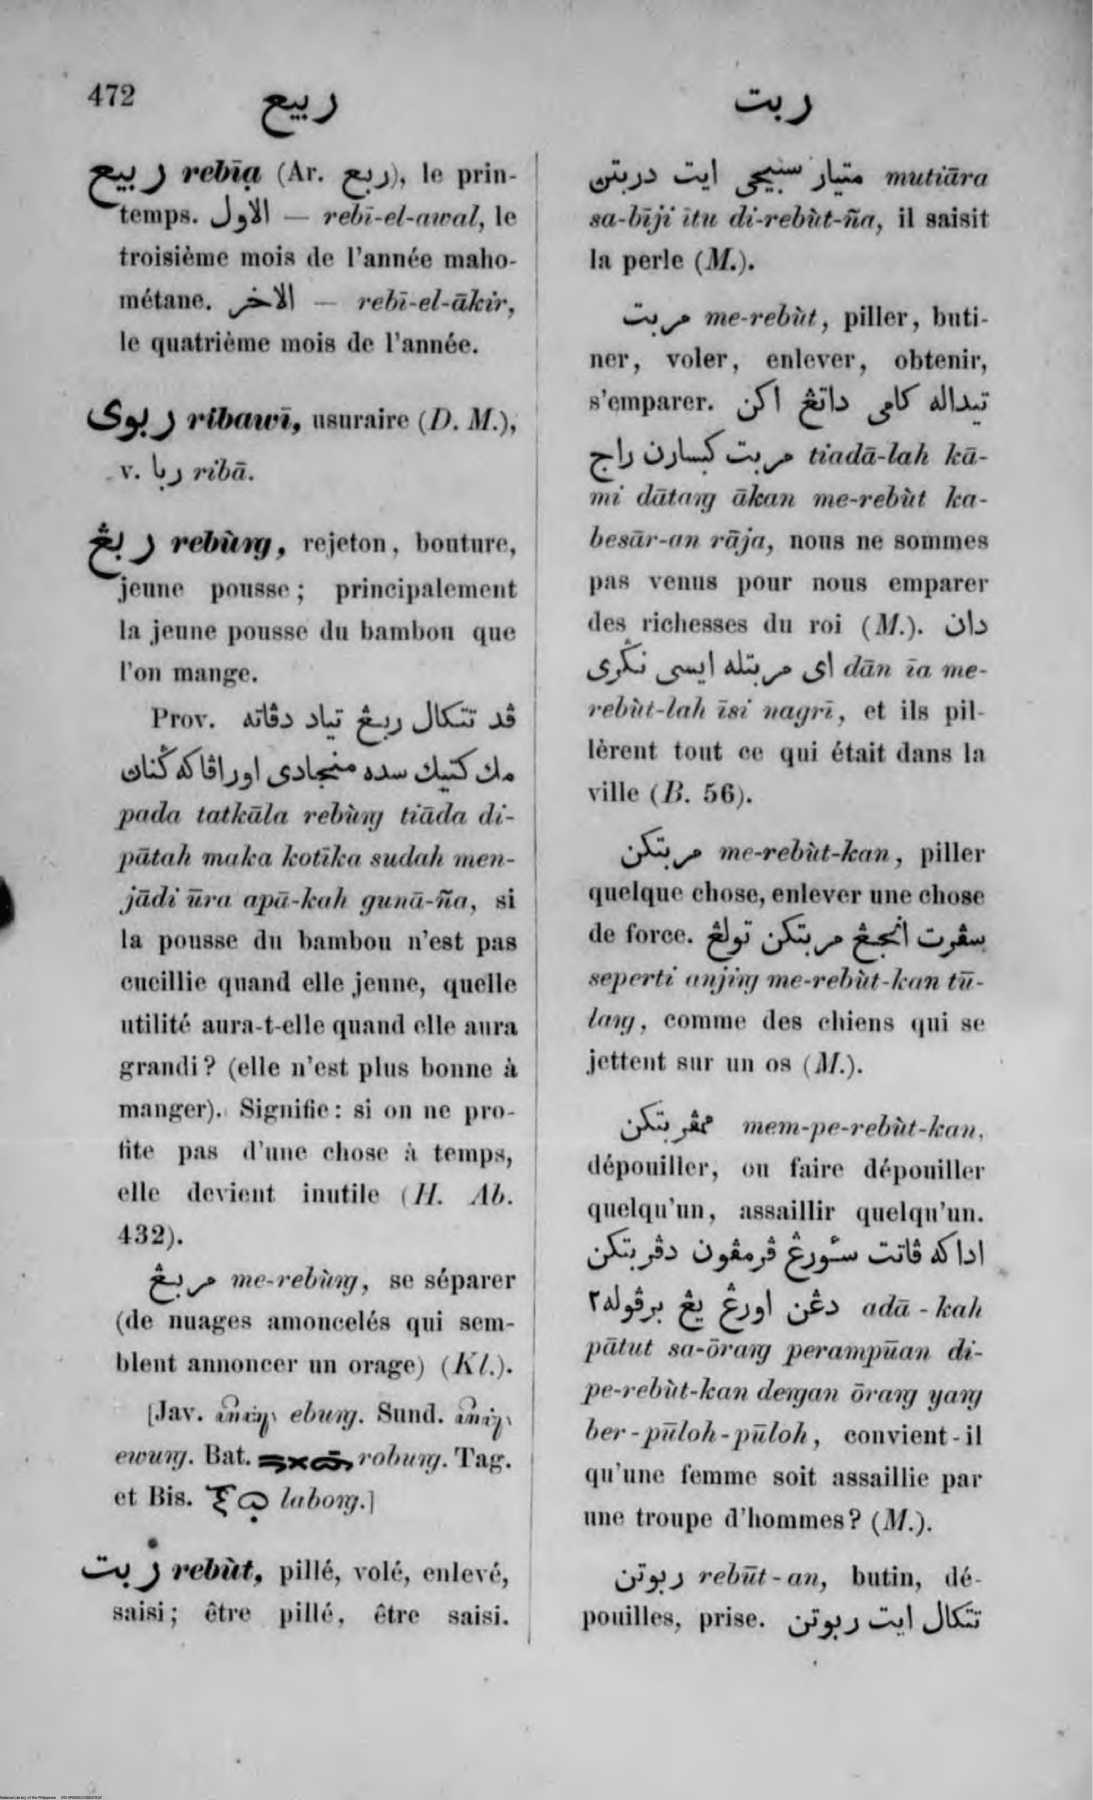 472
ربيع
ربت
ربيع rebīạ (Ar. ربع), le prin-
temps. الاول — rebī-el-awal, le
troisième mois de l'année maho-
métane. الاخر — rebī-el-ākir,
le quatrième mois de l'année.
ربوى ribawī, usuraire (D. M.),
v. ربا ribā.
ربڠ rebùng, rejeton, bouture,
jeune pousse; principalement
la jeune pousse du bambou que
l'on mange.
Prov. ڤد تتكال ربڠ تياد دڤاته
مك كتيك سده منجادى اور اڤاكه ݢناڽ
pada tatkāla rebùng tiāda di-
pātah maka kotīka sudah men-
jādi ūra apā-kah gunā-ña, si
la pousse du bambou n'est pas
cueillie quand elle jeune, quelle
utilité aura-t-elle quand elle aura
grandi? (elle n'est plus bonne à
manger). Signifie: si on ne pro-
fite pas d'une chose à temps,
elle devient inutile (H. Ab.
432).
مربڠ me-rebùng, se séparer
(de nuages amoncelés qui sem-
blent annoncer un orage) (Kl.).
[Jav. ebung. Sund.
ewung. Bat. robung. Tag.
et Bis. labong.]
ربت rebùt, pillé, volé, enlevé,
saisi; être pillé, être saisi.
متيار سبيجى ايت دربتڽ mutiāra
sa-bīji ītu di-rebùt-ña, il saisit
la perle (M.).
مربت me-rebùt, piller, buti-
ner, voler, enlever, obtenir,
s'emparer. تيداله كامى داتڠ اكن
مربت كبسارن راج tiadā-lah kā-
mi dātang ākan me-rebùt ka-
besār-an rāja, nous ne sommes
pas venus pour nous emparer
des richesses du roi (M.). دان
اى مربتله ايسى نݢرى dān īa me-
rebùt-lah īsi nagrī, et ils pil-
lèrent tout ce qui était dans la
ville (B. 56).
مربتكن me-rebùt-kan, piller
quelque chose, enlever une chose
de force. سڤرت انجڠ مربتكن تولڠ
seperti anjing me-rebùt-kan tū-
lang, comme des chiens qui se
jettent sur un os (M.).
ممڤربتكن mem-pe-rebùt-kan,
dépouiller, ou faire dépouiller
quelqu'un, assaillir quelqu'un.
اداكه ڤاتت سئورڠ ڤرمڤون دڤربتكن
دڠن اورڠ يڠ برڤوله٢ adā-kah
pātut sa-ōrang perampūan di-
pe-rebùt-kan dengan ōrang yang
ber-pūloh-pūloh, convient-il
qu'une femme soit assaillie par
une troupe d'hommes? (M.).
ربوتن rebūt-an, butin, dé-
pouilles, prise. تتكال ايت ربوتن